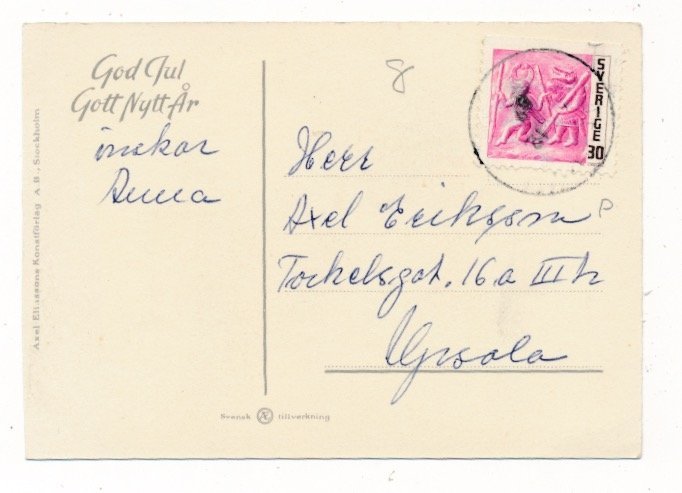 God Jul
Gott Nytt År
önskar
Anna
Axel Eliassons Konstförlag A.B., Stockholm
8
SVERIGE
30
Herr
Axel Eriksson
Torkelsgat. 16a III h
Upsala
Svensk Æ tillverkning